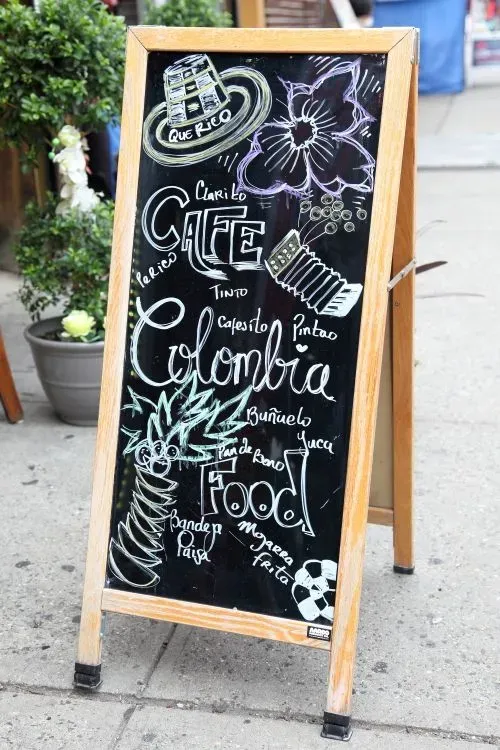 QUE RICO
Clarito
CAFE
Perico
TINTO
Cafesito Pintao
Colombia
Buñuelo
yuca
Pan de Bono
Food
Bandeja
Paisa
Mojarra
frita